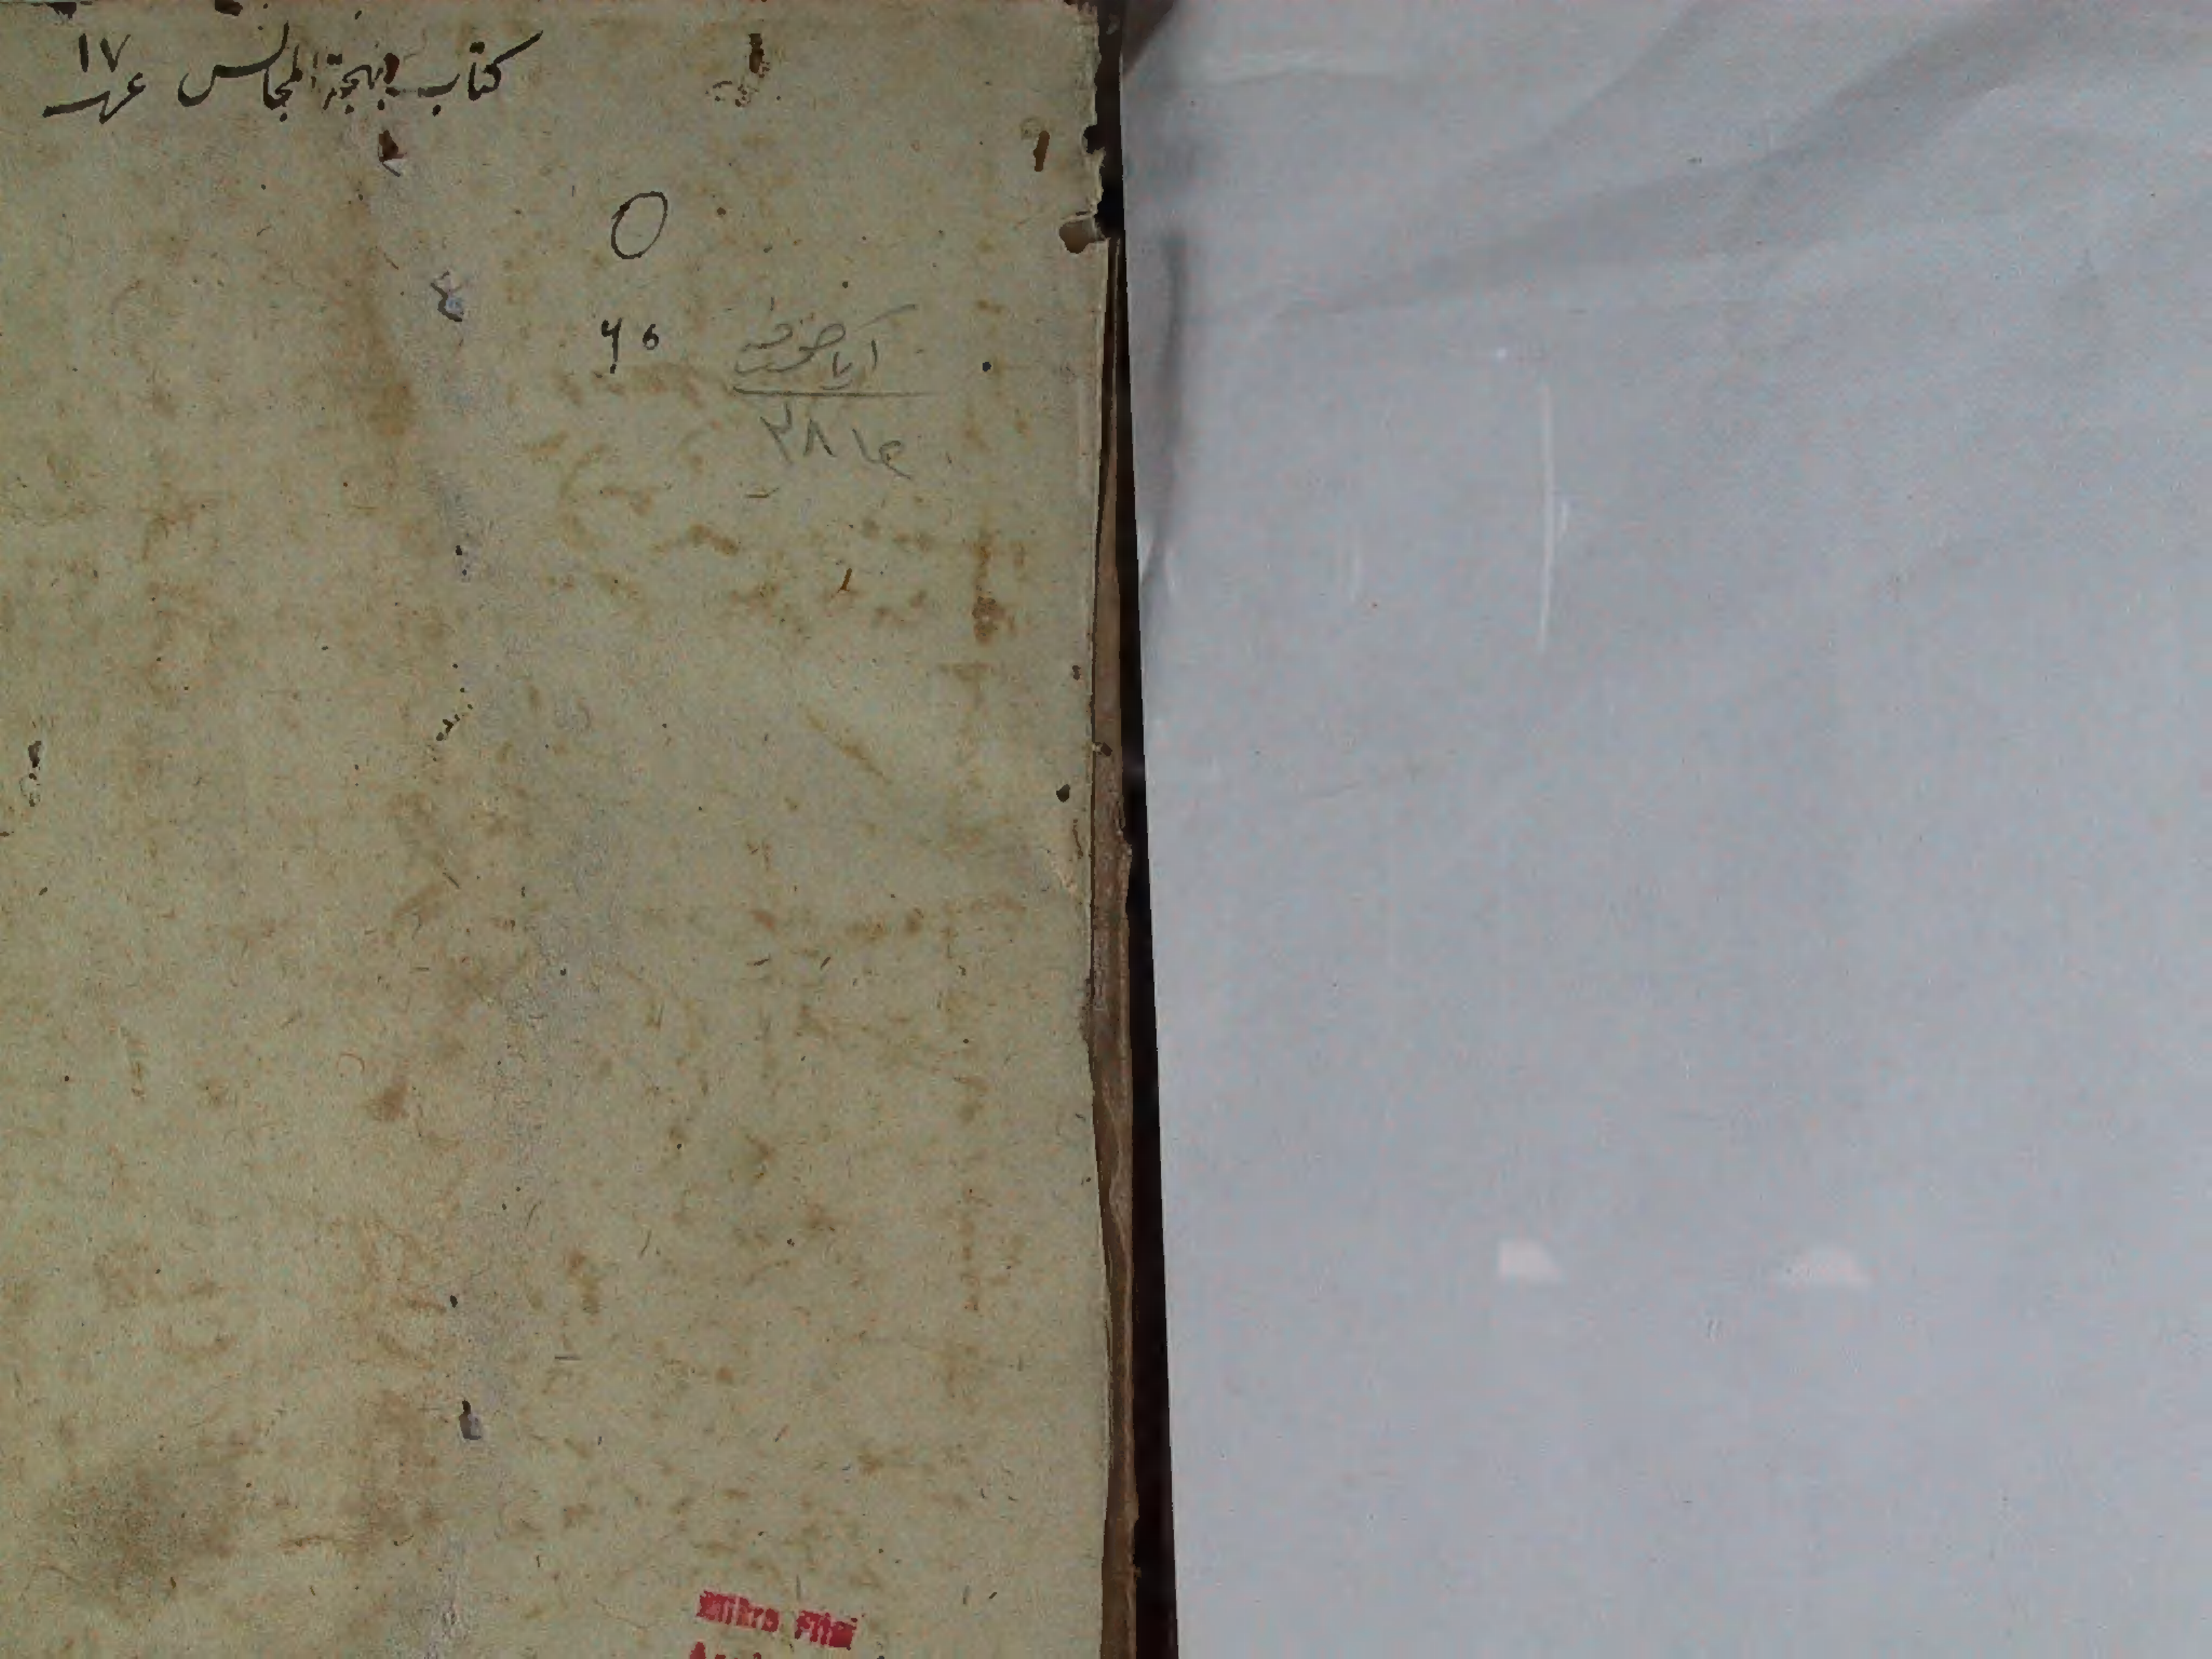 كتاب بهجة المجالس عدد ١٧
٥
٦٥
اياصوفيه
٣٨١٤
Mikro Film